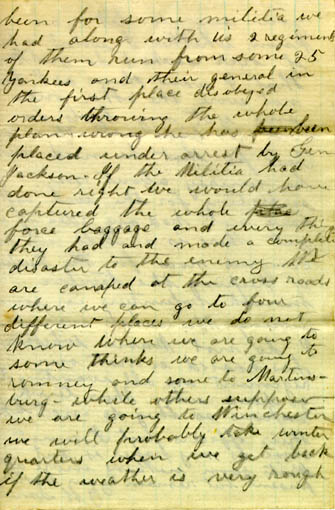 been for some militia we
had along with us 2 regiments
of them run from some 25
Yankees and their general in
the first place disobeyed
orders throwing the whole
plan wrong he has been
placed under arrest by Gen
Jackson. If the Militia had
done right we would have
captured the whole
force baggage and every thing
they had and made a complete
disaster to the enemy We
are camped at the cross roads
where we can go to four
different places we do not
know where we are going to
some thinks we are going to
romney and some to Martins-
burg - while others suppose
we are going to Winchester
we will probably take winter
quarters when we get back
if the weather is very rough